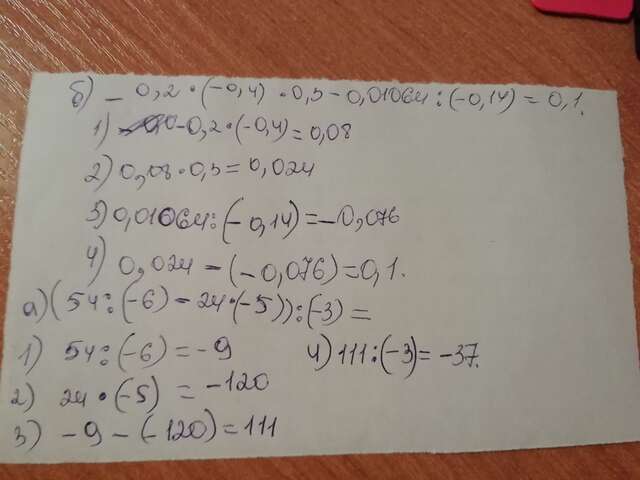 б) -0,2·(-0,4)·0,3-0,01064:(-0,14)=0,1.
1) -0,2·(-0,4)=0,08
2) 0,08·0,3=0,024
3) 0,01064:(-0,14)=-0,076
4) 0,024-(-0,076)=0,1.
а) (54:(-6)-24·(-5)):(-3)=
1) 54:(-6)=-9 4) 111:(-3)=-37.
2) 24·(-5)=-120
3) -9-(-120)=111